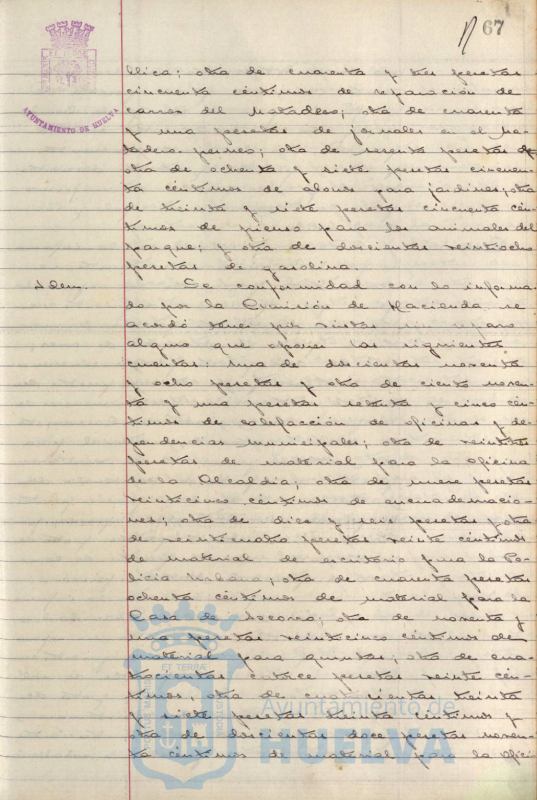 67
AYUNTAMIENTO DE HUELVA
blica; otra de cuarenta y tres pesetas
cincuenta céntimos de reparación de
carros del Matadero; otra de cuarenta
y una pesetas de jornales en el Ma-
tadero; otra de sesenta pesetas
otra de ochenta y siete pesetas cincuen-
ta céntimos de abonos para jardines; otra
de treinta y siete pesetas cincuenta cén-
timos de pienso para los animales del
parque; y otra de doscientas veintiocho
pesetas de gasolina.
Idem.
De conformidad con lo informa-
do por la Comisión de Hacienda se
acordó tener por vistas sin reparo
alguno que oponer las siguientes
cuentas: una de doscientas noventa
y ocho pesetas y otra de ciento noven-
ta y una pesetas setenta y cinco cén-
timos de calefacción de oficinas y de-
pendencias municipales; otra de
pesetas de material para la oficina
de la Alcaldía; otra de nueve pesetas
veinticinco céntimos de encuadernacio-
nes; otra de diez y seis pesetas y otra
de veinticuatro pesetas veinte céntimos
de material de escritorio para la Po-
licía Urbana; otra de cuarenta pesetas
ochenta céntimos de material para la
Casa de Socorro; otra de noventa y
una pesetas veinticinco céntimos de
material para quintas; otra de cua-
trocientas catorce pesetas veinte cén-
timos, otra de cuatrocientas treinta
y siete pesetas treinta céntimos y
otra de doscientas doce pesetas noven-
ta céntimos de material para la ofici
ET TERRÆ
Ayuntamiento de
HUELVA